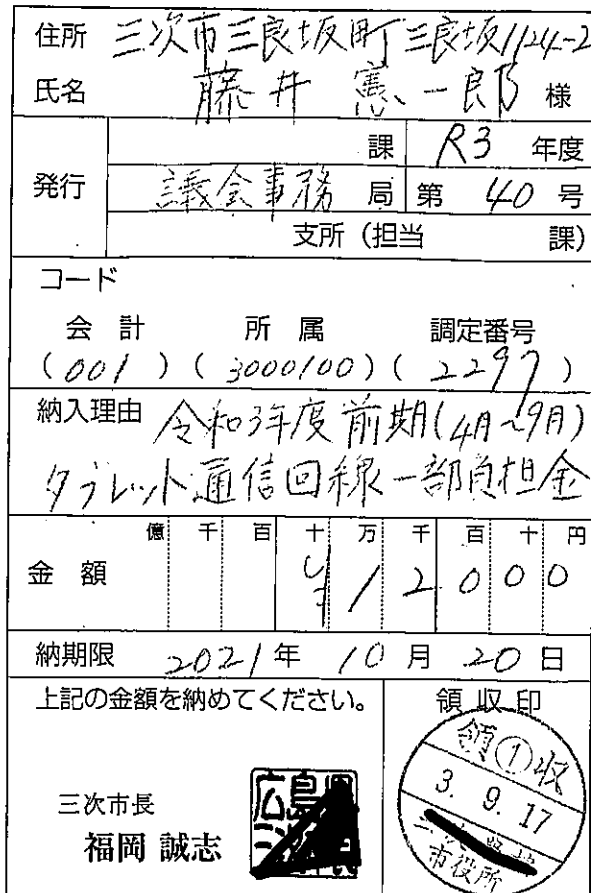 住所 三次市三良坂町三良坂1124-2
氏名 藤井 憲一郎 様
課 R3 年度
発行 議会事務 局 第 40 号
支所 (担当 課)
コード
会計 所属 調定番号
(001) (3000100) (2297)
納入理由 令和3年度前期(4月~9月)
タブレット通信回線一部負担金
億 千 百 十 万 千 百 十 円
金額 ¥12000
納期限 2021年 10月 20日
上記の金額を納めてください。
領収印
領①収
3. 9. 17
市役所
三次市長
福岡 誠志